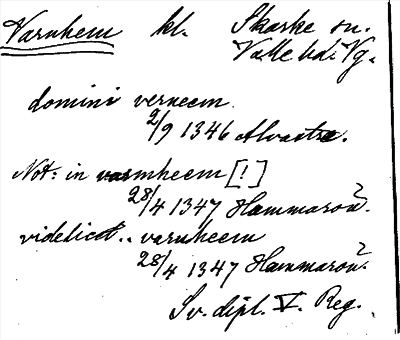 Varnhem kl. Skarke sn.
Valle hd. Vg.
domini verneem.
2/9 1346 Alvastra.
Not: in varmheem [!]
28/4 1347 Hammarön?
videlicet.. varnheem
28/4 1347 Hammarön?
Sv. dipl. V. Reg.